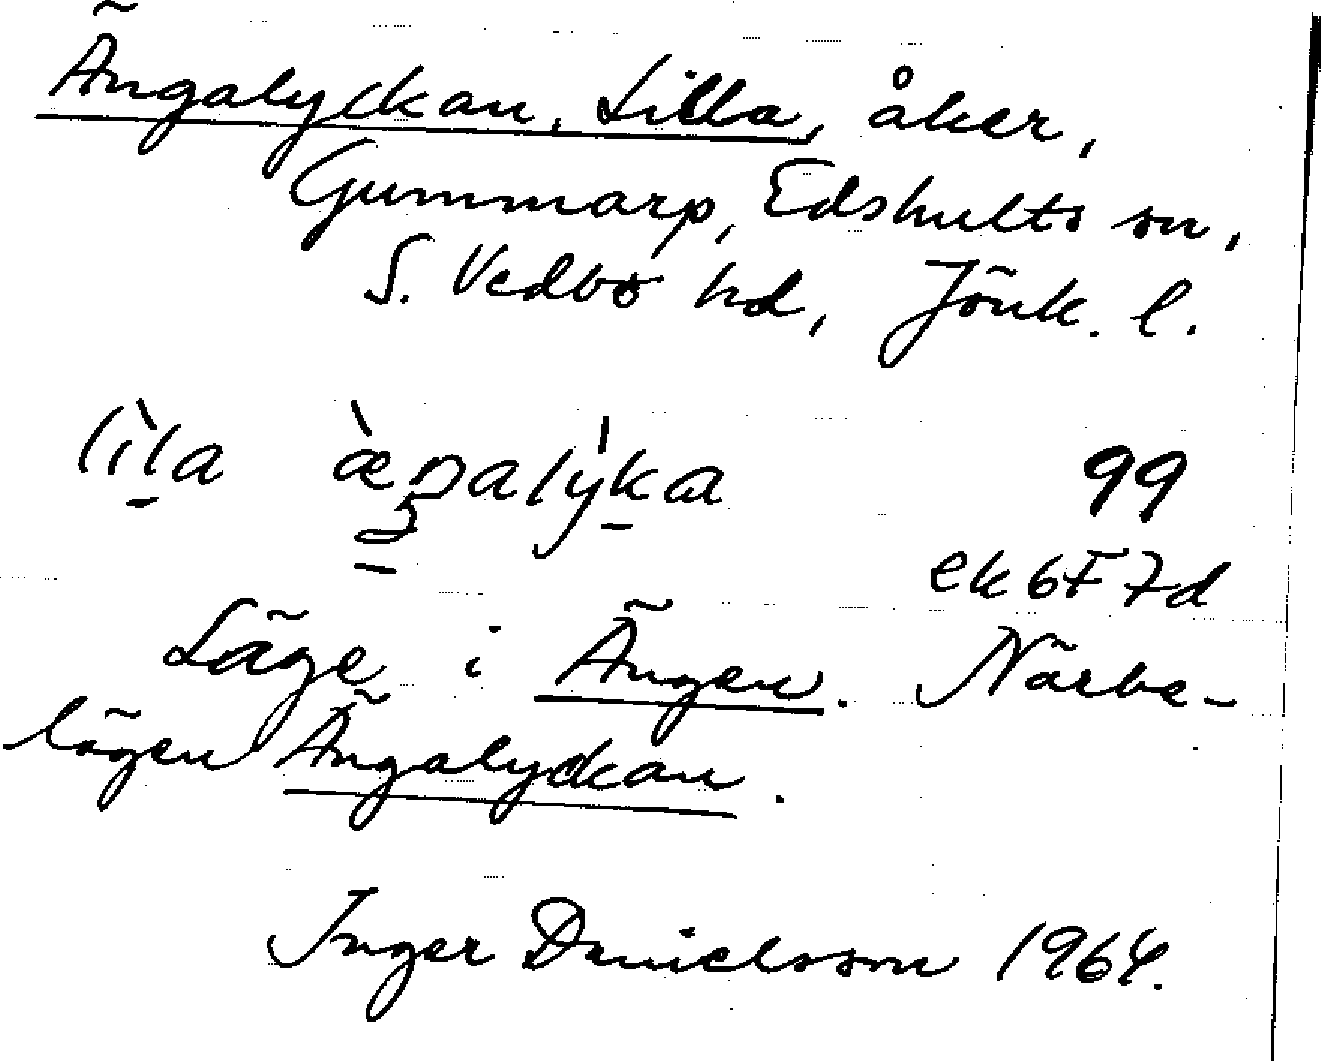 Ängalyckan, Lilla, åker,
Gummarp, Edshults sn,
S. Vedbo hd, Jönk. l.
lìla æ̀ŋalýka 99
ek 6F7d
Läge i Ängen. Närbe-
lägen Ängalyckan.
Inger Danielsson 1964.